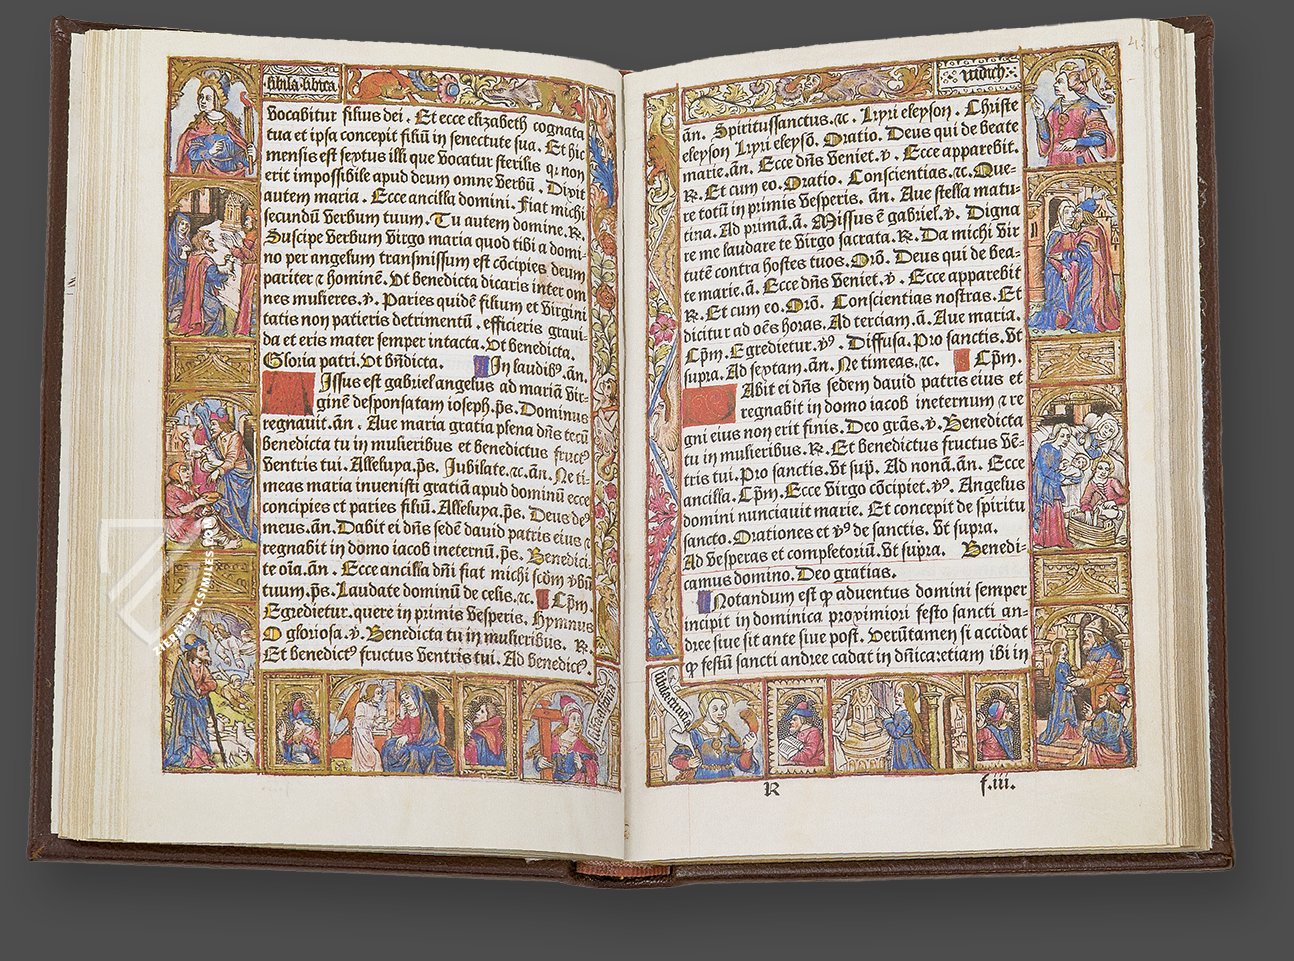 sibila·libica
vocabitur filius dei . Et ecce elizabeth cognata
tua et ipsa concepit filiū in senectute sua. Et hic
mensis est sextus illi que vocatur sterilis qꝛ non
erit impossibile apud deum omne verbū . Dixit
autem maria . Ecce ancilla domini. Fiat michi
secundū verbum tuum. Tu autem domine. ℟.
Suscipe verbum virgo maria quod tibi a domi-
no per angelum transmissum est cōcipies deum
pariter ⁊ hominē. Vt benedicta dicaris inter om
nes mulieres. ℣. Paries quidē filium et virgini
tatis non patieris detrimentū . efficieris graui-
da et eris mater semper intacta. Vt benedicta.
Gloria patri. Vt bn̄dicta. In laudibꝰ. an̄.
Missus est gabriel angelus ad mariā vir-
ginē desponsatam ioseph. ps̄. Dominus
regnauit. an̄ . Aue maria gratia plena dn̄s tecū
benedicta tu in mulieribus et benedictus fructꝰ
ventris tui. Alleluya. ps̄. Jubilate. ⁊c. an̄. Ne ti-
meas maria inuenisti gratiā apud dominū ecce
concipies et paries filiū. Alleluya. ps̄. Deus deꝰ
meus. an̄. Dabit ei dn̄s sedē dauid patris eius ⁊
regnabit in domo iacob ineternū. ps̄. Benedici-
te oīa. an̄ . Ecce ancilla dn̄i fiat michi scdm̄ vbū
tuum. ps̄. Laudate dominū de celis. ⁊c. Cp̄m.
Egredietur. quere in primis vesperis. Hymnus
O gloriosa. ℣. Benedicta tu in mulieribus. ℟.
Et benedictꝰ fructus ventris tui. Ad benedictꝰ.
iudich
an̄. Spiritussanctus. ⁊c . Kyri eleyson . Christe
eleyson Kyri eleysō. Oratio. Deus qui de beate
marie. an̄. Ecce dn̄s veniet. ℣ . Ecce apparebit.
℟. Et cum eo. Oratio. Conscientias. ⁊c. Que-
re totū in primis vesperis. an̄. Aue stella matu-
tina. Ad primā. ā. Missus ē gabriel. ℣. Digna
re me laudare te virgo sacrata. ℟. Da michi vir
tutē contra hostes tuos. Orō. Deus qui de bea-
te marie. ā. Ecce dn̄s veniet. ℣ . Ecce apparebit
℟. Et cum eo. Orō. Conscientias nostras. Et
dicitur ad oēs horas. Ad terciam. ā. Aue maria.
Cp̄m. Egredietur. ℣ꝰ . Diffusa. Pro sanctis. vt
supra. Ad sextam. an̄. Ne timeas. ⁊c. Cp̄m.
Dabit ei dn̄s sedem dauid patris eius et
regnabit in domo iacob ineternum ⁊ re
gni eius non erit finis. Deo grās. ℣. Benedicta
tu in mulieribus. ℟. Et benedictus fructus vē-
tris tui. Pro sanctis. vt sup̄. Ad nonā. an̄. Ecce
ancilla. Cp̄m. Ecce virgo cōcipiet. ℣ꝰ. Angelus
domini nunciauit marie. Et concepit de spiritu
sancto. Orationes et ℣ꝰ de sanctis. vt supra.
Ad vesperas et completoriū. vt supra. Benedi-
camus domino. Deo gratias.
Notandum est ꝙ aduentus domini semper
incipit in dominica proximiori festo sancti an-
dree siue sit ante siue post. verūtamen si accidat
ꝙ festū sancti andree cadat in dn̄ica: etiam ibi in
R
f.iii.
ZIEREIS FACSIMILES